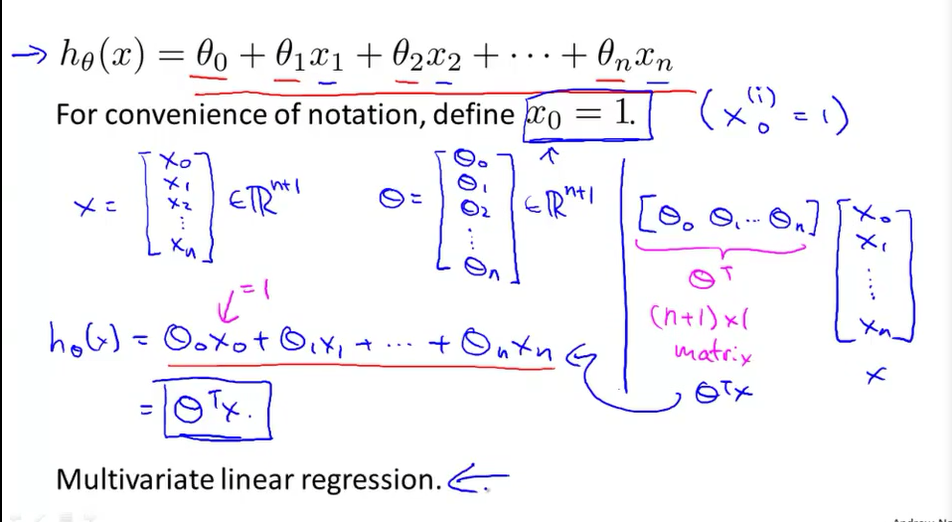 → hθ(x) = θ0 + θ1x1 + θ2x2 + ⋯ + θnxn
For convenience of notation, define x0 = 1. (x0^(i) = 1)
x = [x0 x1 x2 ⋮ xn] ∈ ℝ^(n+1)
θ = [θ0 θ1 θ2 ⋮ θn] ∈ ℝ^(n+1)
[θ0 θ1 ⋯ θn] [x0 x1 ⋮ xn]
θ^T
(n+1) × 1
matrix
x
θ^T x
= 1
hθ(x) = θ0x0 + θ1x1 + ⋯ + θnxn
= θ^T x.
Multivariate linear regression. ←